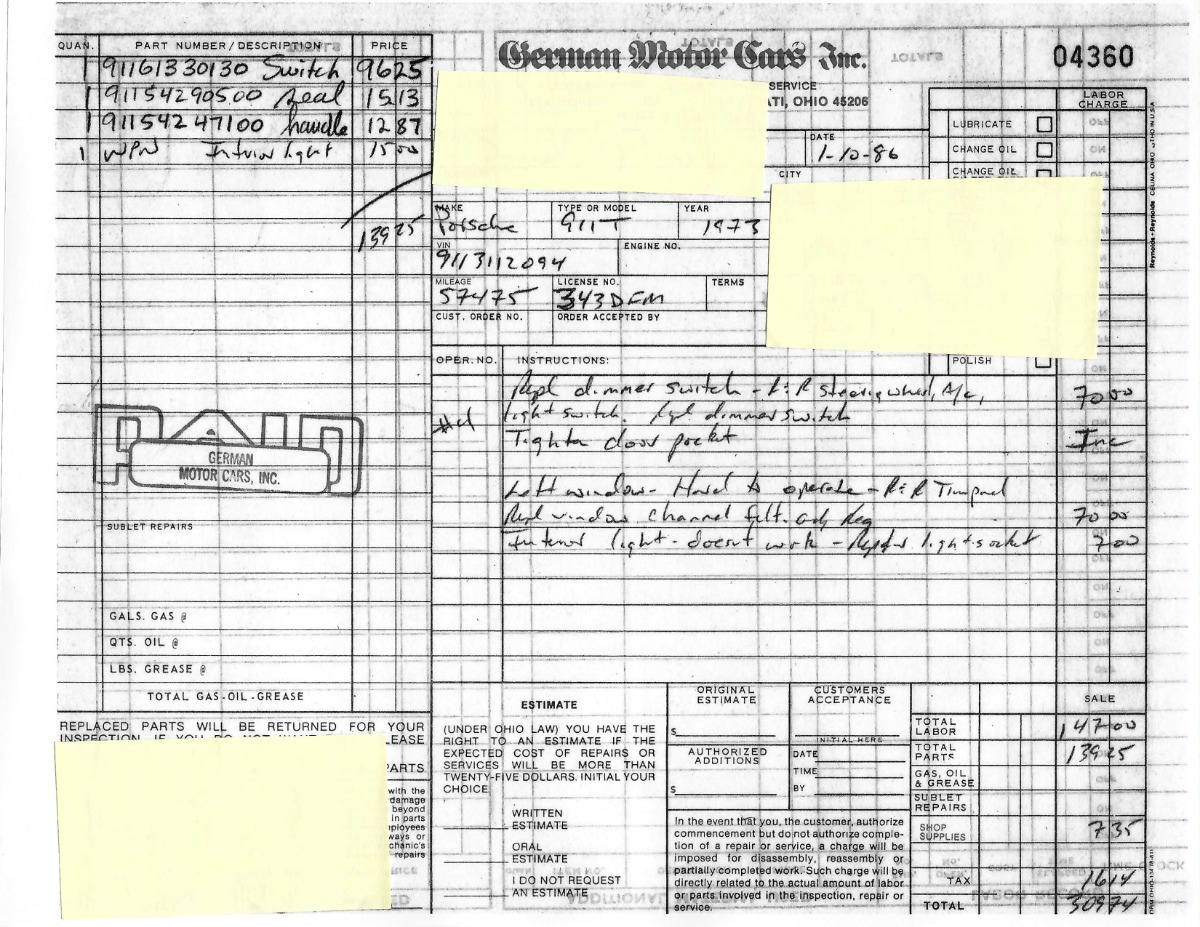 German Motor Cars Inc.
04360
SERVICE
ATI, OHIO 45206
QUAN. PART NUMBER/DESCRIPTION PRICE
1 91161330130 Switch 9625
1 91154290500 Seal 1513
1 91154247100 handle 1287
1 NPN Interior light 1500
13925
LABOR CHARGE
LUBRICATE
CHANGE OIL
CHANGE OIL
DATE
1-10-86
CITY
MAKE TYPE OR MODEL YEAR
Porsche 911T 1973
VIN ENGINE NO.
9113112094
MILEAGE LICENSE NO. TERMS
57475 343DFM
CUST. ORDER NO. ORDER ACCEPTED BY
POLISH
OPER. NO. INSTRUCTIONS:
Repl dimmer switch - R&R steering wheel, A/c, 7000
light switch. Repl dimmer switch
Tighten door pocket Inc
Left window - Hard to operate - R&R Trimpanel
Repl window channel felt. adj Reg 7000
Interior light - doesnt work - Replac light & socket 700
GERMAN
MOTOR CARS, INC.
SUBLET REPAIRS
GALS. GAS @
QTS. OIL @
LBS. GREASE @
TOTAL GAS-OIL-GREASE
REPLACED PARTS WILL BE RETURNED FOR YOUR
LEASE
PARTS
with the
damage
beyond
in parts
ployees
ways or
chanic's
repairs
ESTIMATE
(UNDER OHIO LAW) YOU HAVE THE
RIGHT TO AN ESTIMATE IF THE
EXPECTED COST OF REPAIRS OR
SERVICES WILL BE MORE THAN
TWENTY-FIVE DOLLARS. INITIAL YOUR
CHOICE.
WRITTEN
ESTIMATE
ORAL
ESTIMATE
I DO NOT REQUEST
AN ESTIMATE
ORIGINAL
ESTIMATE
$
AUTHORIZED
ADDITIONS
$
CUSTOMERS
ACCEPTANCE
INITIAL HERE
DATE
TIME
BY
In the event that you, the customer, authorize
commencement but do not authorize comple-
tion of a repair or service, a charge will be
imposed for disassembly, reassembly or
partially completed work. Such charge will be
directly related to the actual amount of labor
or parts involved in the inspection, repair or
service.
SALE
TOTAL LABOR 14700
TOTAL PARTS 13925
GAS, OIL & GREASE
SUBLET REPAIRS
SHOP SUPPLIES 735
TAX 1614
TOTAL 30974